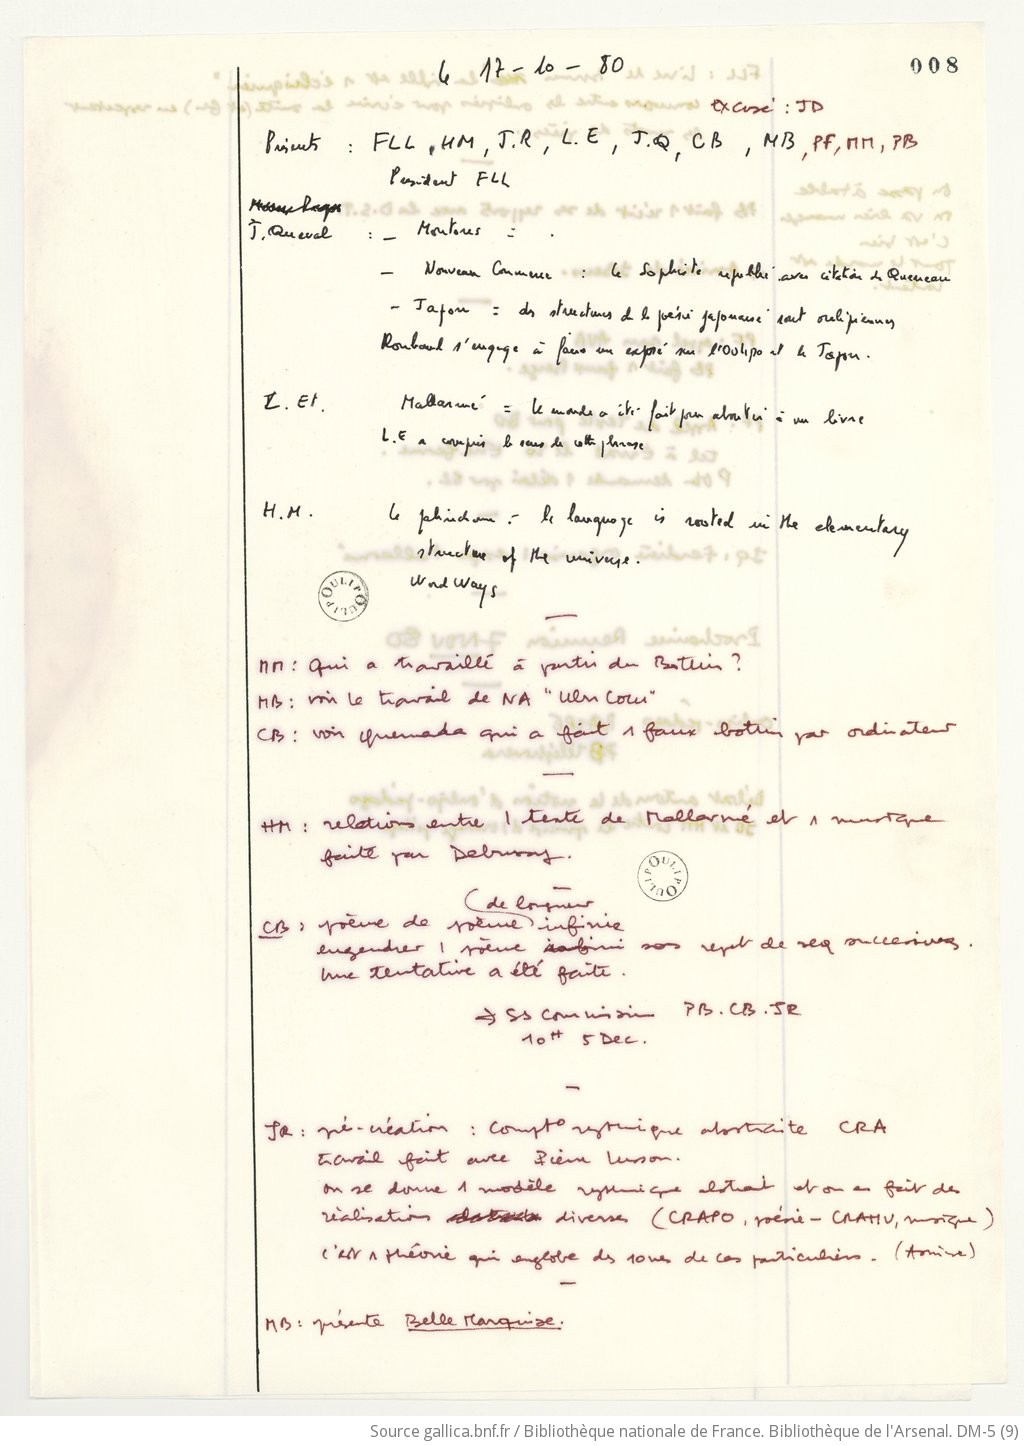 008
le 17-10-80
Excusé : JD
Présents : FLL, HM, J.R, L.E, J.Q, CB, MB, PF, MM, PB
Président FLL
J. Queval : –
– Nouveau Commerce : le Sophiste republié avec citation de Queneau
– Japon = des structures de la poésie japonaise sont oulipiennes
Roubaud s'engage à faire un exposé sur l'Oulipo et le Japon.
L. Et. Mallarmé = le monde a été fait pour aboutir à un livre
L.E a compris le sens de cette phrase
H.M. le :- the language is rooted in the elementary
structure of the universe.
Word Ways
OULIPO OULIPO
MM : Qui a travaillé à partir du Bottin ?
MB : voir le travail de NA "Ulcn Couu"
CB : voir Quemada qui a fait 1 faux bottin par ordinateur
HM : relations entre 1 texte de Mallarmé et 1 musique
faite par Debussy.
OULIPO OULIPO
(de longueur
CB : poème de poème) infinie
engendrer 1 poème sans repet de seq successives.
Une tentative a été faite.
→ SS Commission PB.CB.JR
10H 5 Dec.
JR : pré-création : Compto rythmique abstraite CRA
travail fait avec Pierre Lusson.
on se donne 1 modèle rythmique abstrait et on en fait des
réalisations diverses (CRAPO, poésie – CRAMU, musique)
c'est 1 théorie qui englobe des 10nes de cas particuliers.
MB : présente Belle Marquise.
Source gallica.bnf.fr / Bibliothèque nationale de France. Bibliothèque de l'Arsenal. DM-5 (9)